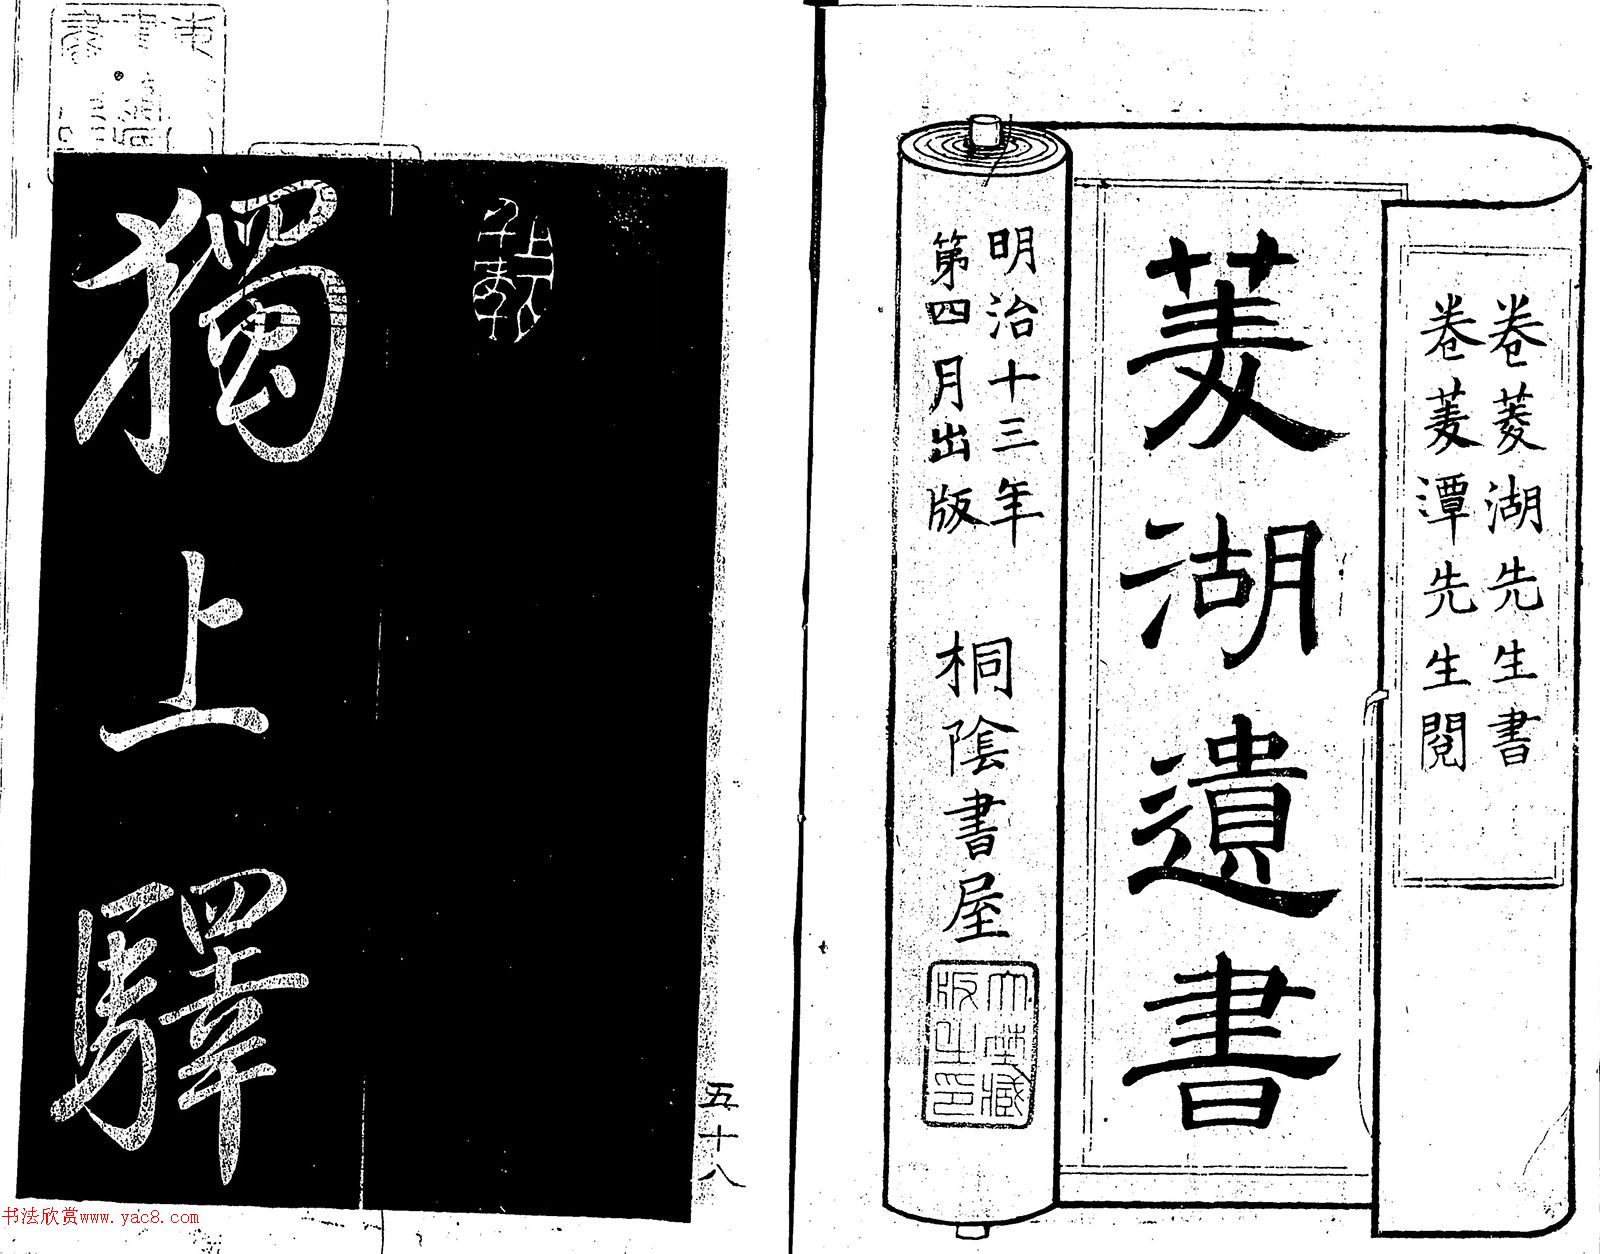 卷菱湖先生書
卷菱潭先生閱
菱湖遺書
明治十三年
第四月出版
桐陰書屋
獨上驛
五十八
书法欣赏www.yac8.com